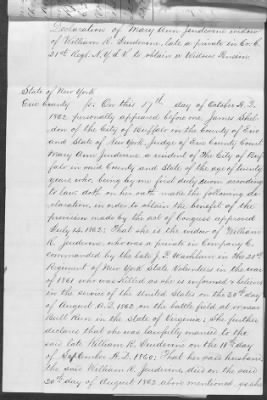 Declaration of Mary Ann Jerdevine widow
of William R. Jerdevine, late a private in Co. C.
21st Regt. N.Y.S.V. to obtain a Widows Pension.
State of New York
Erie County ss. On this 17th day of October A.D.
1862 personally appeared before me James Shel-
don of the City of Buffalo in the County of Erie
and State of New York, Judge of Erie County Court
Mary Ann Jerdevine a resident of the City of Buf-
falo in said County and State of the age of twenty
years who, being by me first duly sworn according
to law, doth on her oath make the following de-
claration, in order to obtain the benefit of the
provision made by the act of Congress approved
July 14. 1862: That she is the widow of William
R. Jerdevine, who was a private in Company C.
commanded by the late J. P. Washburn in the 21st
Regiment of New York State Volunteers in the war
of 1861 who was killed as she is informed & believes
in the service of the United States on the 30th day
of August A.D. 1862 on the battle field at or near
Bull Run in the State of Virginia; She further
declares that she was lawfully married to the
said late William R. Jerdevine on the 18th day
of September A.D. 1860; That her said husband
the said William R. Jerdevine, died on the said
30th day of August 1862 above mentioned, as she